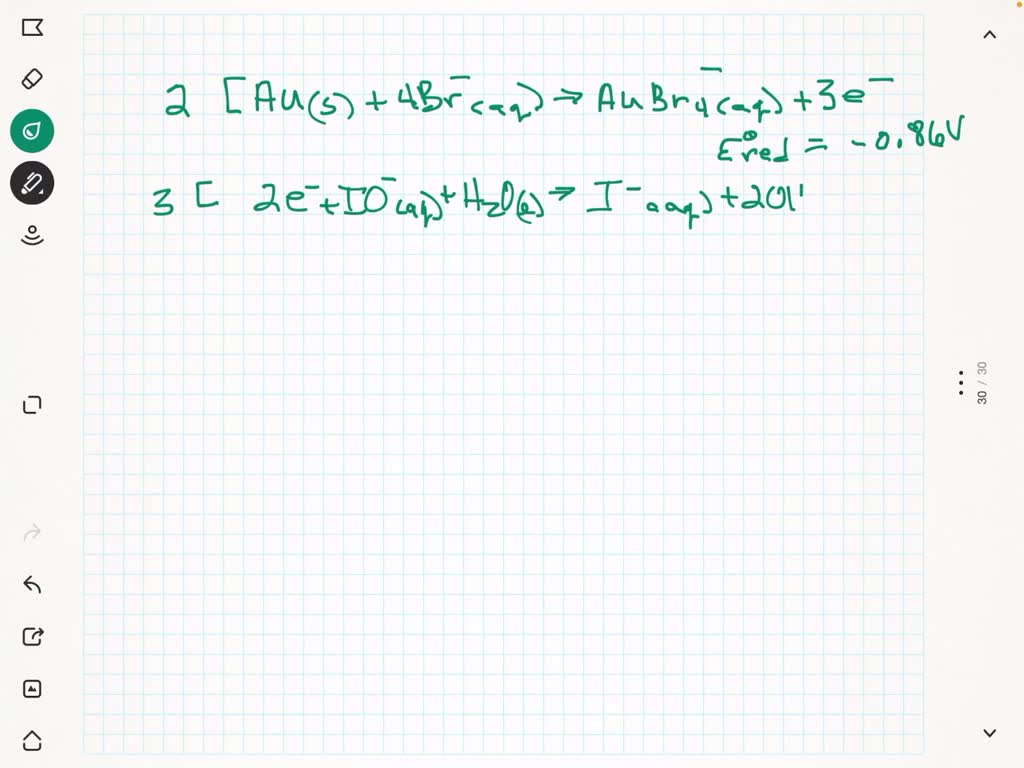 2 [Au(s) + 4Br⁻(aq) → AuBr₄⁻(aq) + 3e⁻
E°red = -0.86V
3 [ 2e⁻ + IO⁻(aq) + H₂O(l) → I⁻(aq) + 2O
30 / 30